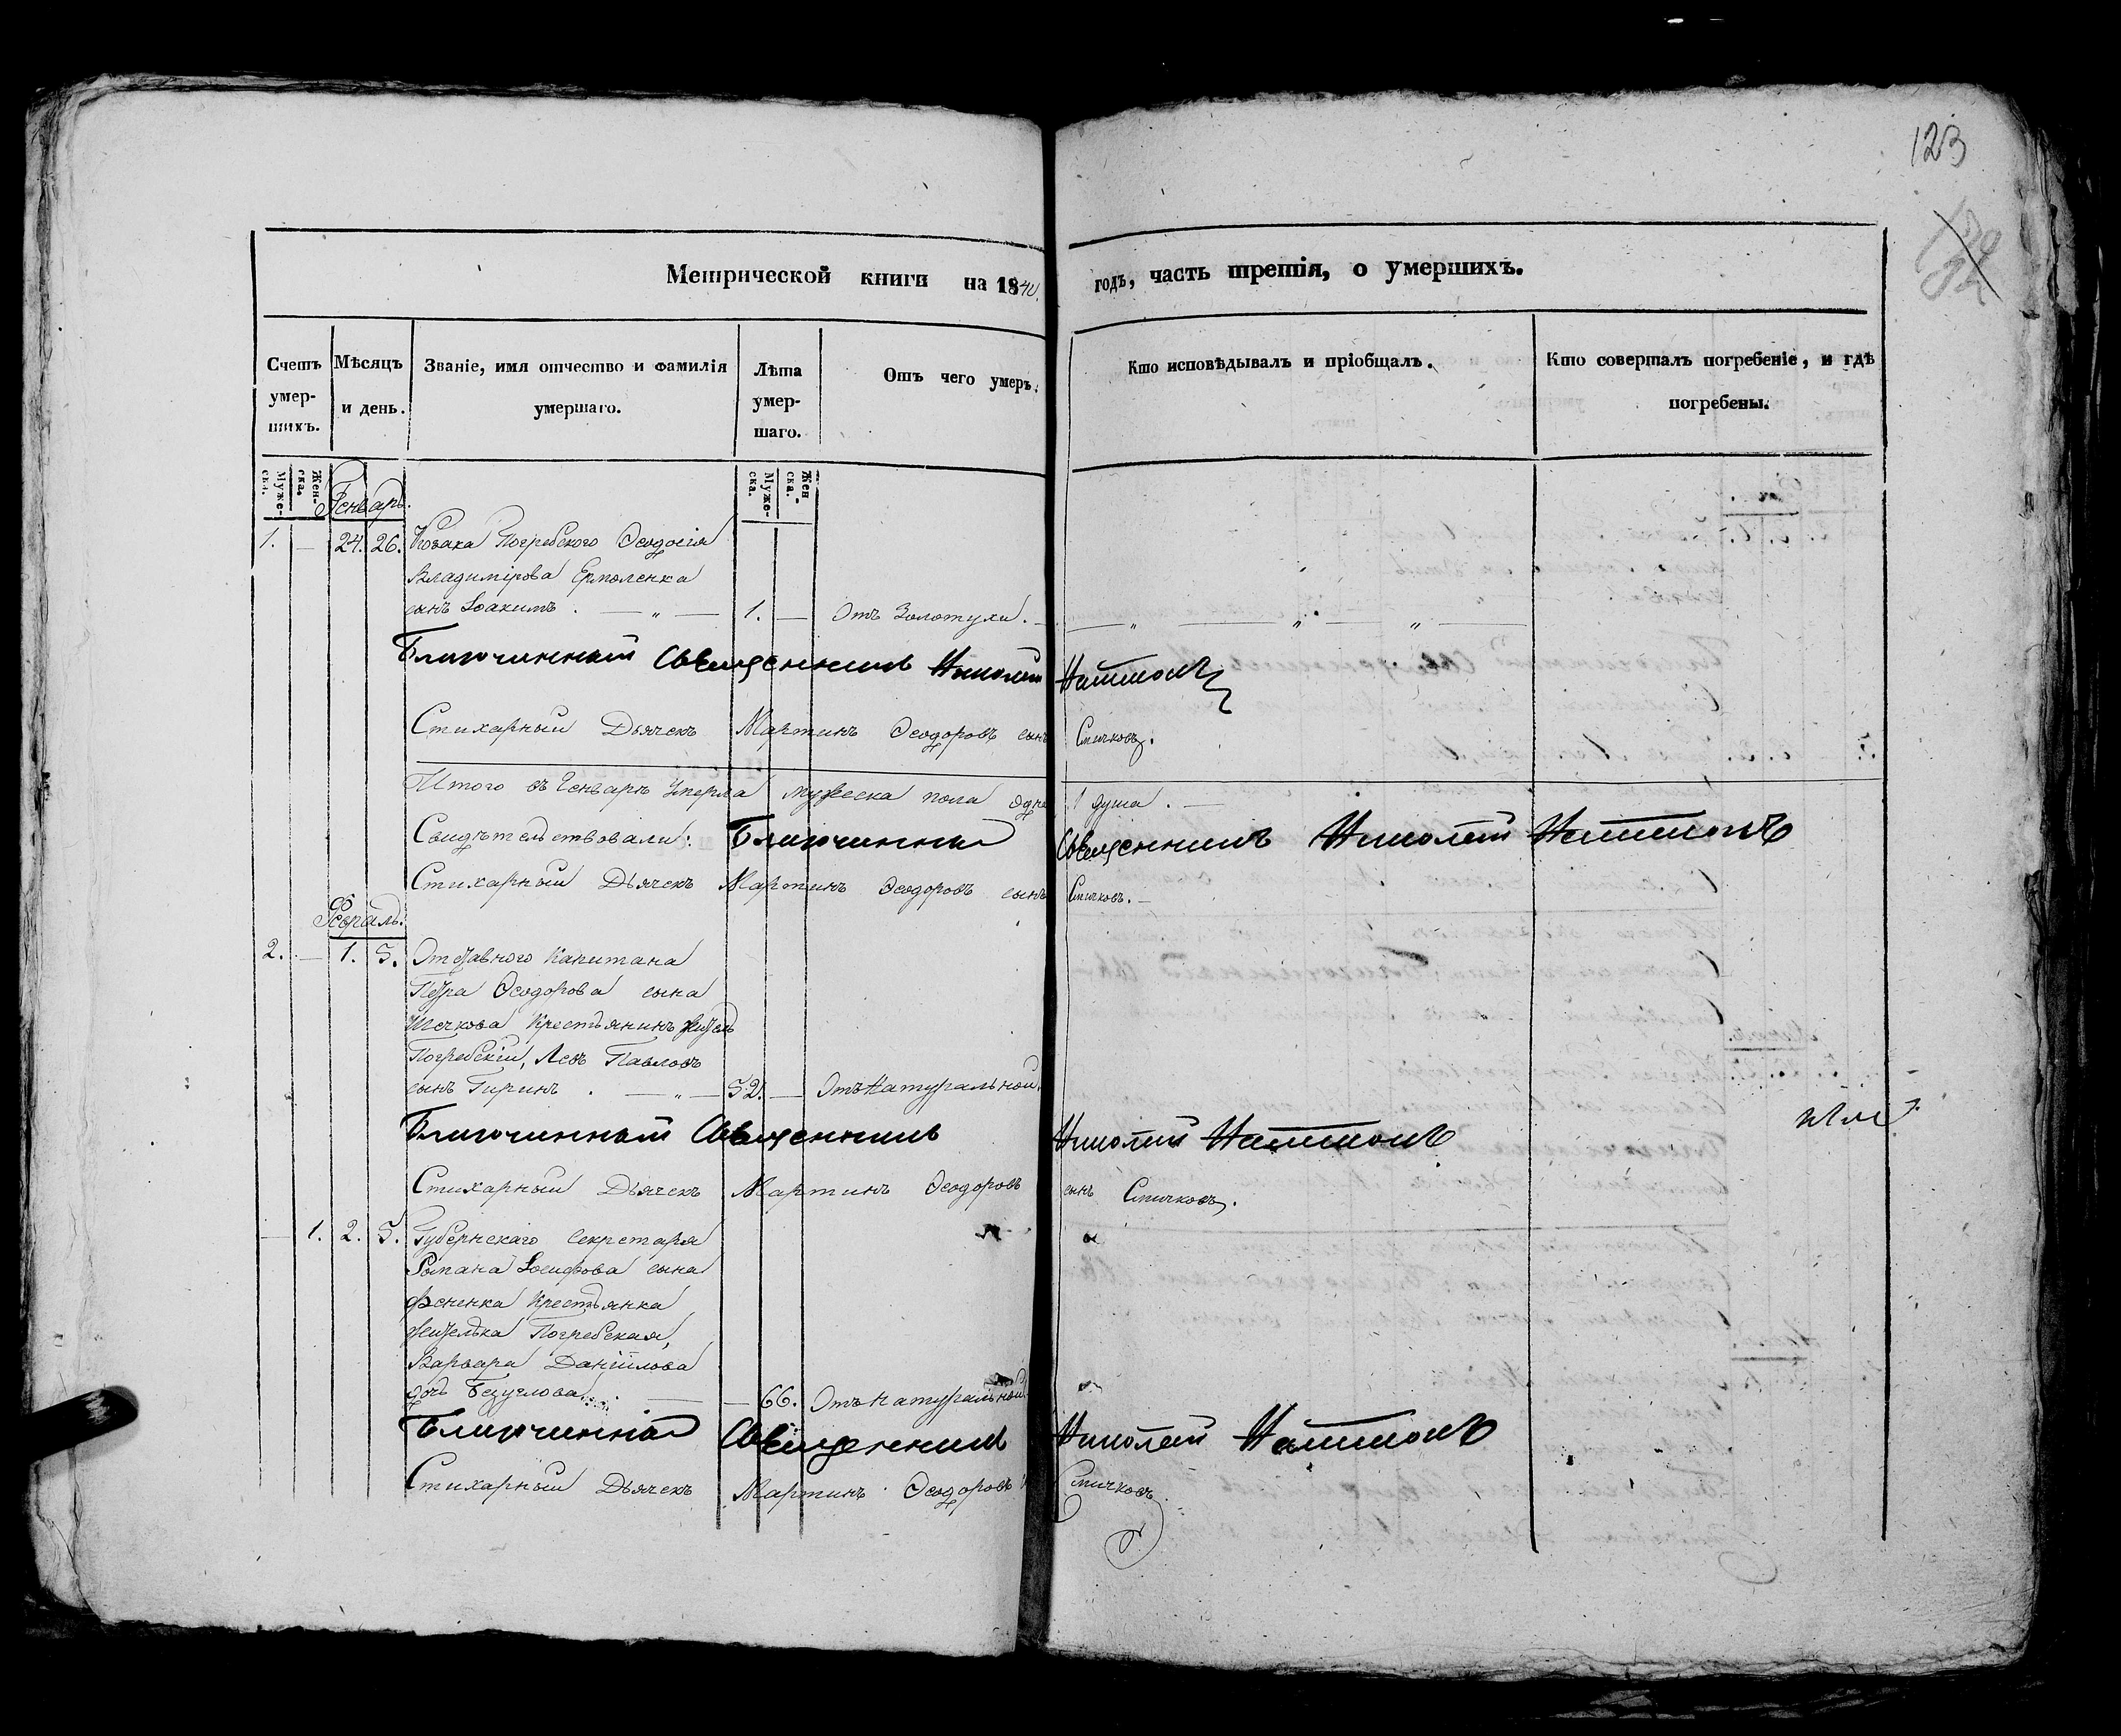 123
Метрической книги на 1840. годъ, часть третія, о умершихъ.
Счетъ умер-шихъ.
Мѣсяцъ и день.
Званіе, имя отчество и фамилія умершаго.
Лѣта умер-шаго.
Отъ чего умеръ.
Кто исповѣдывалъ и пріобщалъ.
Кто совершалъ погребеніе, и гдѣ погребены.
Муже-ска. Жен-ска. Генварь. Муже-ска. Жен-ска.
1. — 24. 26. Козака Погребского Ѳеодосія
Владимірова Ермоленка
сынъ Іоакимъ. — „ — 1. — Отъ Золотухи. — „ — „ — „ —
Благочинный Священникъ Николай
Стихарный Дьячекъ Мартинъ Ѳеодоровъ сынъ Смичковъ.
Итого въ Генварѣ Умерла мужеска пола одна душа. —
Свидѣтельствовали: Благочинный Священникъ Николай
Стихарный Дьячекъ Мартинъ Ѳеодоровъ сынъ Смичковъ. —
Февраль.
2. — 1. 5. Отставного Капитана
Петра Ѳеодорова сына
Шечкова Крестьянинъ житель
Погребскій, Левъ Павловъ
сынъ Гиринъ. — „ — 52. — Отъ Натуральной.
Благочинный Священникъ Николай
Стихарный Дьячекъ Мартинъ Ѳеодоровъ сынъ Смичковъ.
— 1. 2. 5. Губернскаго Секретаря
Романа Іосифова сына
Фененка Крестьянка
жителька Погребская,
Варвара Даніилова
дочь — — 66. Отъ Натуральной
Благочинный Священникъ Николай
Стихарный Дьячекъ Мартинъ Ѳеодоровъ Смичковъ.